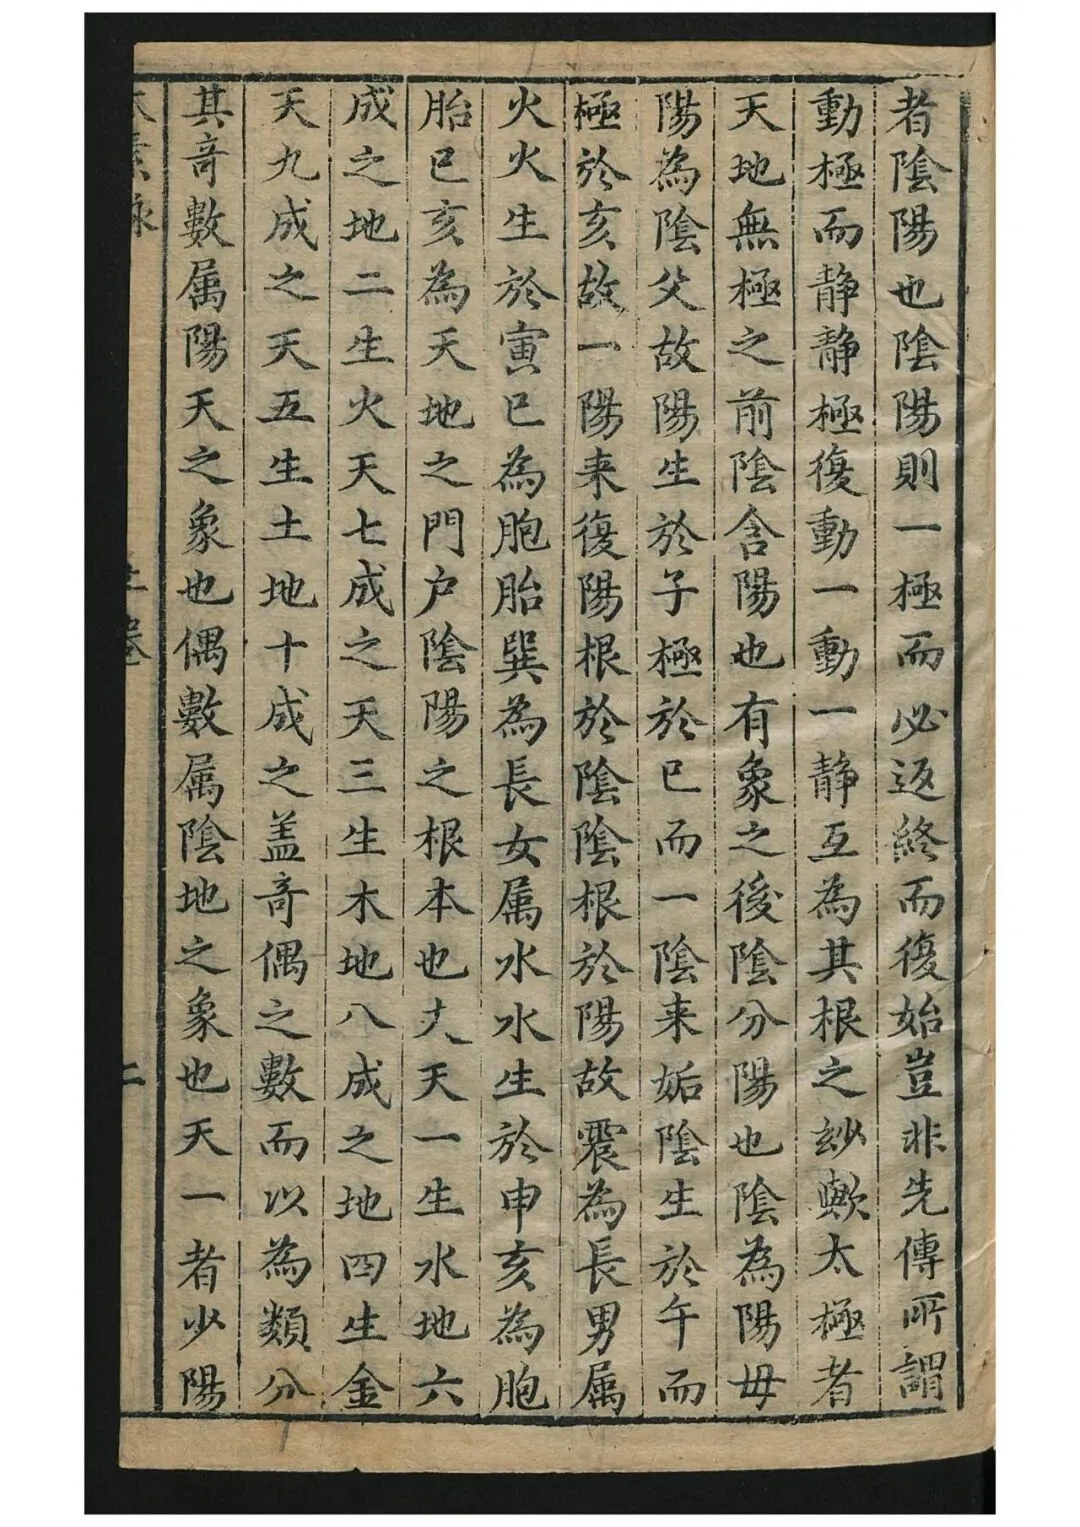 者陰陽也陰陽則一極而必返終而復始豈非先傳所謂
動極而静静極復動一動一静互為其根之妙歟太極者
天地無極之前陰含陽也有象之後陰分陽也陰為陽毋
陽為陰父故陽生於子極於巳而一陰来姤陰生於午而
極於亥故一陽来復陽根於陰陰根於陽故震為長男属
火火生於寅巳為胞胎巽為長女属水水生於申亥為胞
胎巳亥為天地之門户陰陽之根本也丈天一生水地六
成之地二生火天七成之天三生木地八成之地四生金
天九成之天五生土地十成之盖竒偶之數而以為類分
其竒數属陽天之象也偶數属陰地之象也天一者少陽
太素脉
上卷
二